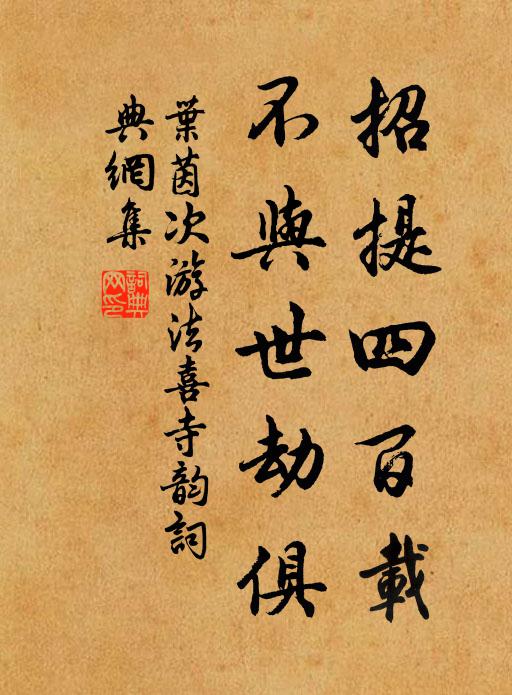 招提四百載
不與世劫俱
葉茵次游法喜寺韵詞
典網集
詞典網印